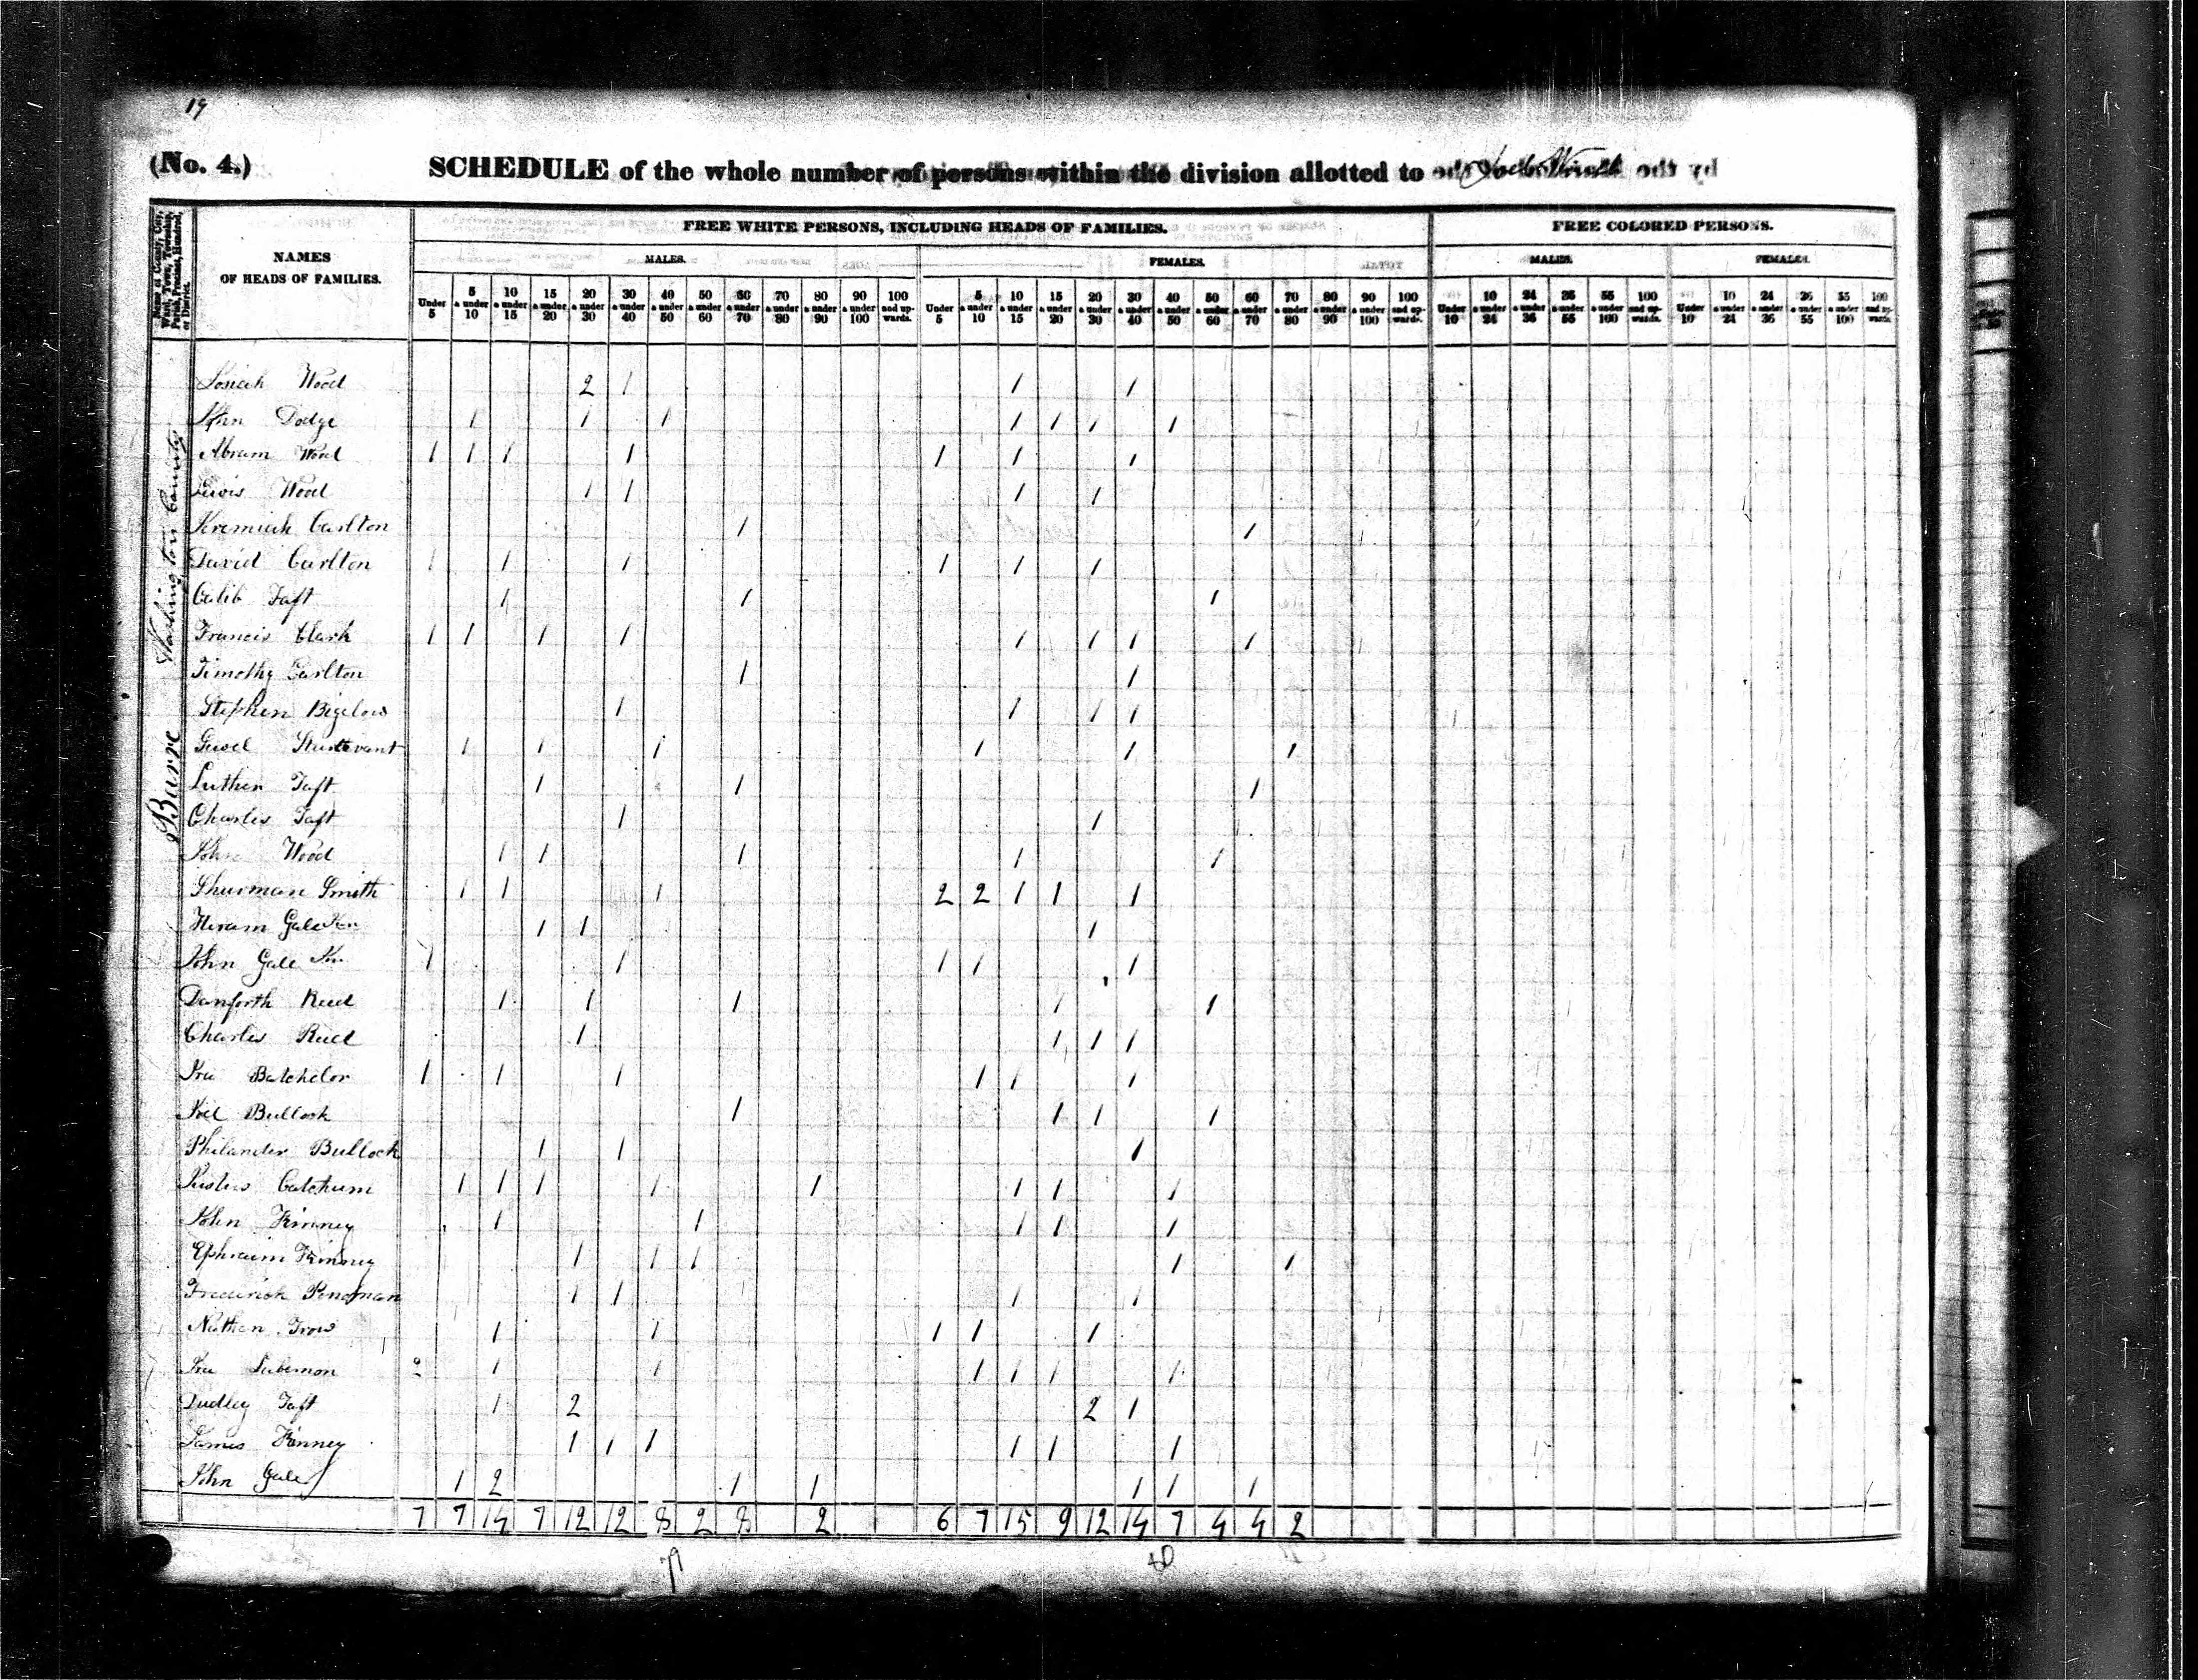 19
(No. 4.) SCHEDULE of the whole number of persons within the division allotted to
Name of County, City, Ward, Town, Township, Parish, Precinct, Hundred, or District.
NAMES OF HEADS OF FAMILIES.
FREE WHITE PERSONS, INCLUDING HEADS OF FAMILIES.
FREE COLORED PERSONS.
MALES. FEMALES. MALES. FEMALES.
Under 5 5 & under 10 10 & under 15 15 & under 20 20 & under 30 30 & under 40 40 & under 50 50 & under 60 60 & under 70 70 & under 80 80 & under 90 90 & under 100 100 and upwards. Under 5 5 & under 10 10 & under 15 15 & under 20 20 & under 30 30 & under 40 40 & under 50 50 & under 60 60 & under 70 70 & under 80 80 & under 90 90 & under 100 100 and upwards. Under 10 10 & under 24 24 & under 36 36 & under 55 55 & under 100 100 and upwards. Under 10 10 & under 24 24 & under 36 36 & under 55 55 & under 100 100 and upwards.
Barre Washington County
Josiah Wood 2 1 1 1
John Dodge 1 1 1 1 1 1 1
Abram Wood 1 1 1 1 1 1 1
Lewis Wood 1 1 1 1
Jeremiah Carlton 1 1
David Carlton 1 1 1 1 1 1
Calib Taft 1 1 1
Francis Clark 1 1 1 1 1 1 1 1
Timothy Carlton 1 1
Stephen Bigelow 1 1 1 1
Sturtevant 1 1 1 1 1 1
Luther Taft 1 1 1
Charles Taft 1 1
John Wood 1 1 1 1 1
Shurman Smith 1 1 1 2 2 1 1 1
Hiram Gale 1 1 1
John Gale Jr. 1 1 1 1 1
Danforth Reed 1 1 1 1 1
Charles Reed 1 1 1 1
Ira Batchelor 1 1 1 1 1 1
Joel Bullock 1 1 1 1
Philander Bullock 1 1 1
Justus Catchum 1 1 1 1 1 1 1 1
John Finney 1 1 1 1 1
Ephraim Finney 1 1 1 1 1
Frederick 1 1 1 1
Nathan Trow 1 1 1 1 1
Ira 2 1 1 1 1 1 1
Dudley Taft 1 2 2 1
James Finney 1 1 1 1 1 1
John Gale 1 2 1 1 1 1 1
7 7 14 7 12 12 8 2 8 2 6 7 15 9 12 14 7 4 4 2